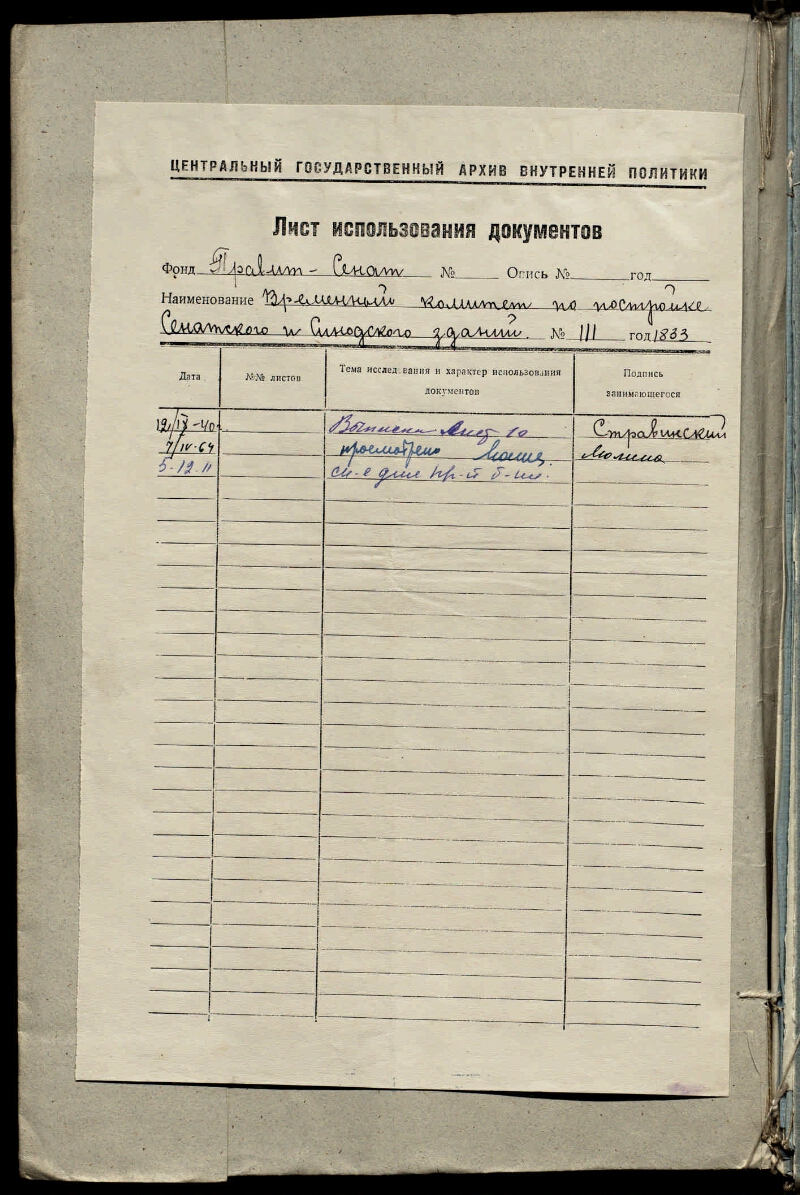 ЦЕНТРАЛЬНЫЙ ГОСУДАРСТВЕННЫЙ АРХИВ ВНУТРЕННЕЙ ПОЛИТИКИ
Лист использования документов
Фонд Правит - Сенат № Опись № год
Наименование Временный комитет по постройке
Сенатского и Синодского зданий. № III год 1833
Дата №№ листов Тема исследования и характер использования документов Подпись занимающегося
12/IX-40 Выписки Лист 10 Стравинский
7/IV-64 просмотрено
5-12 11 для